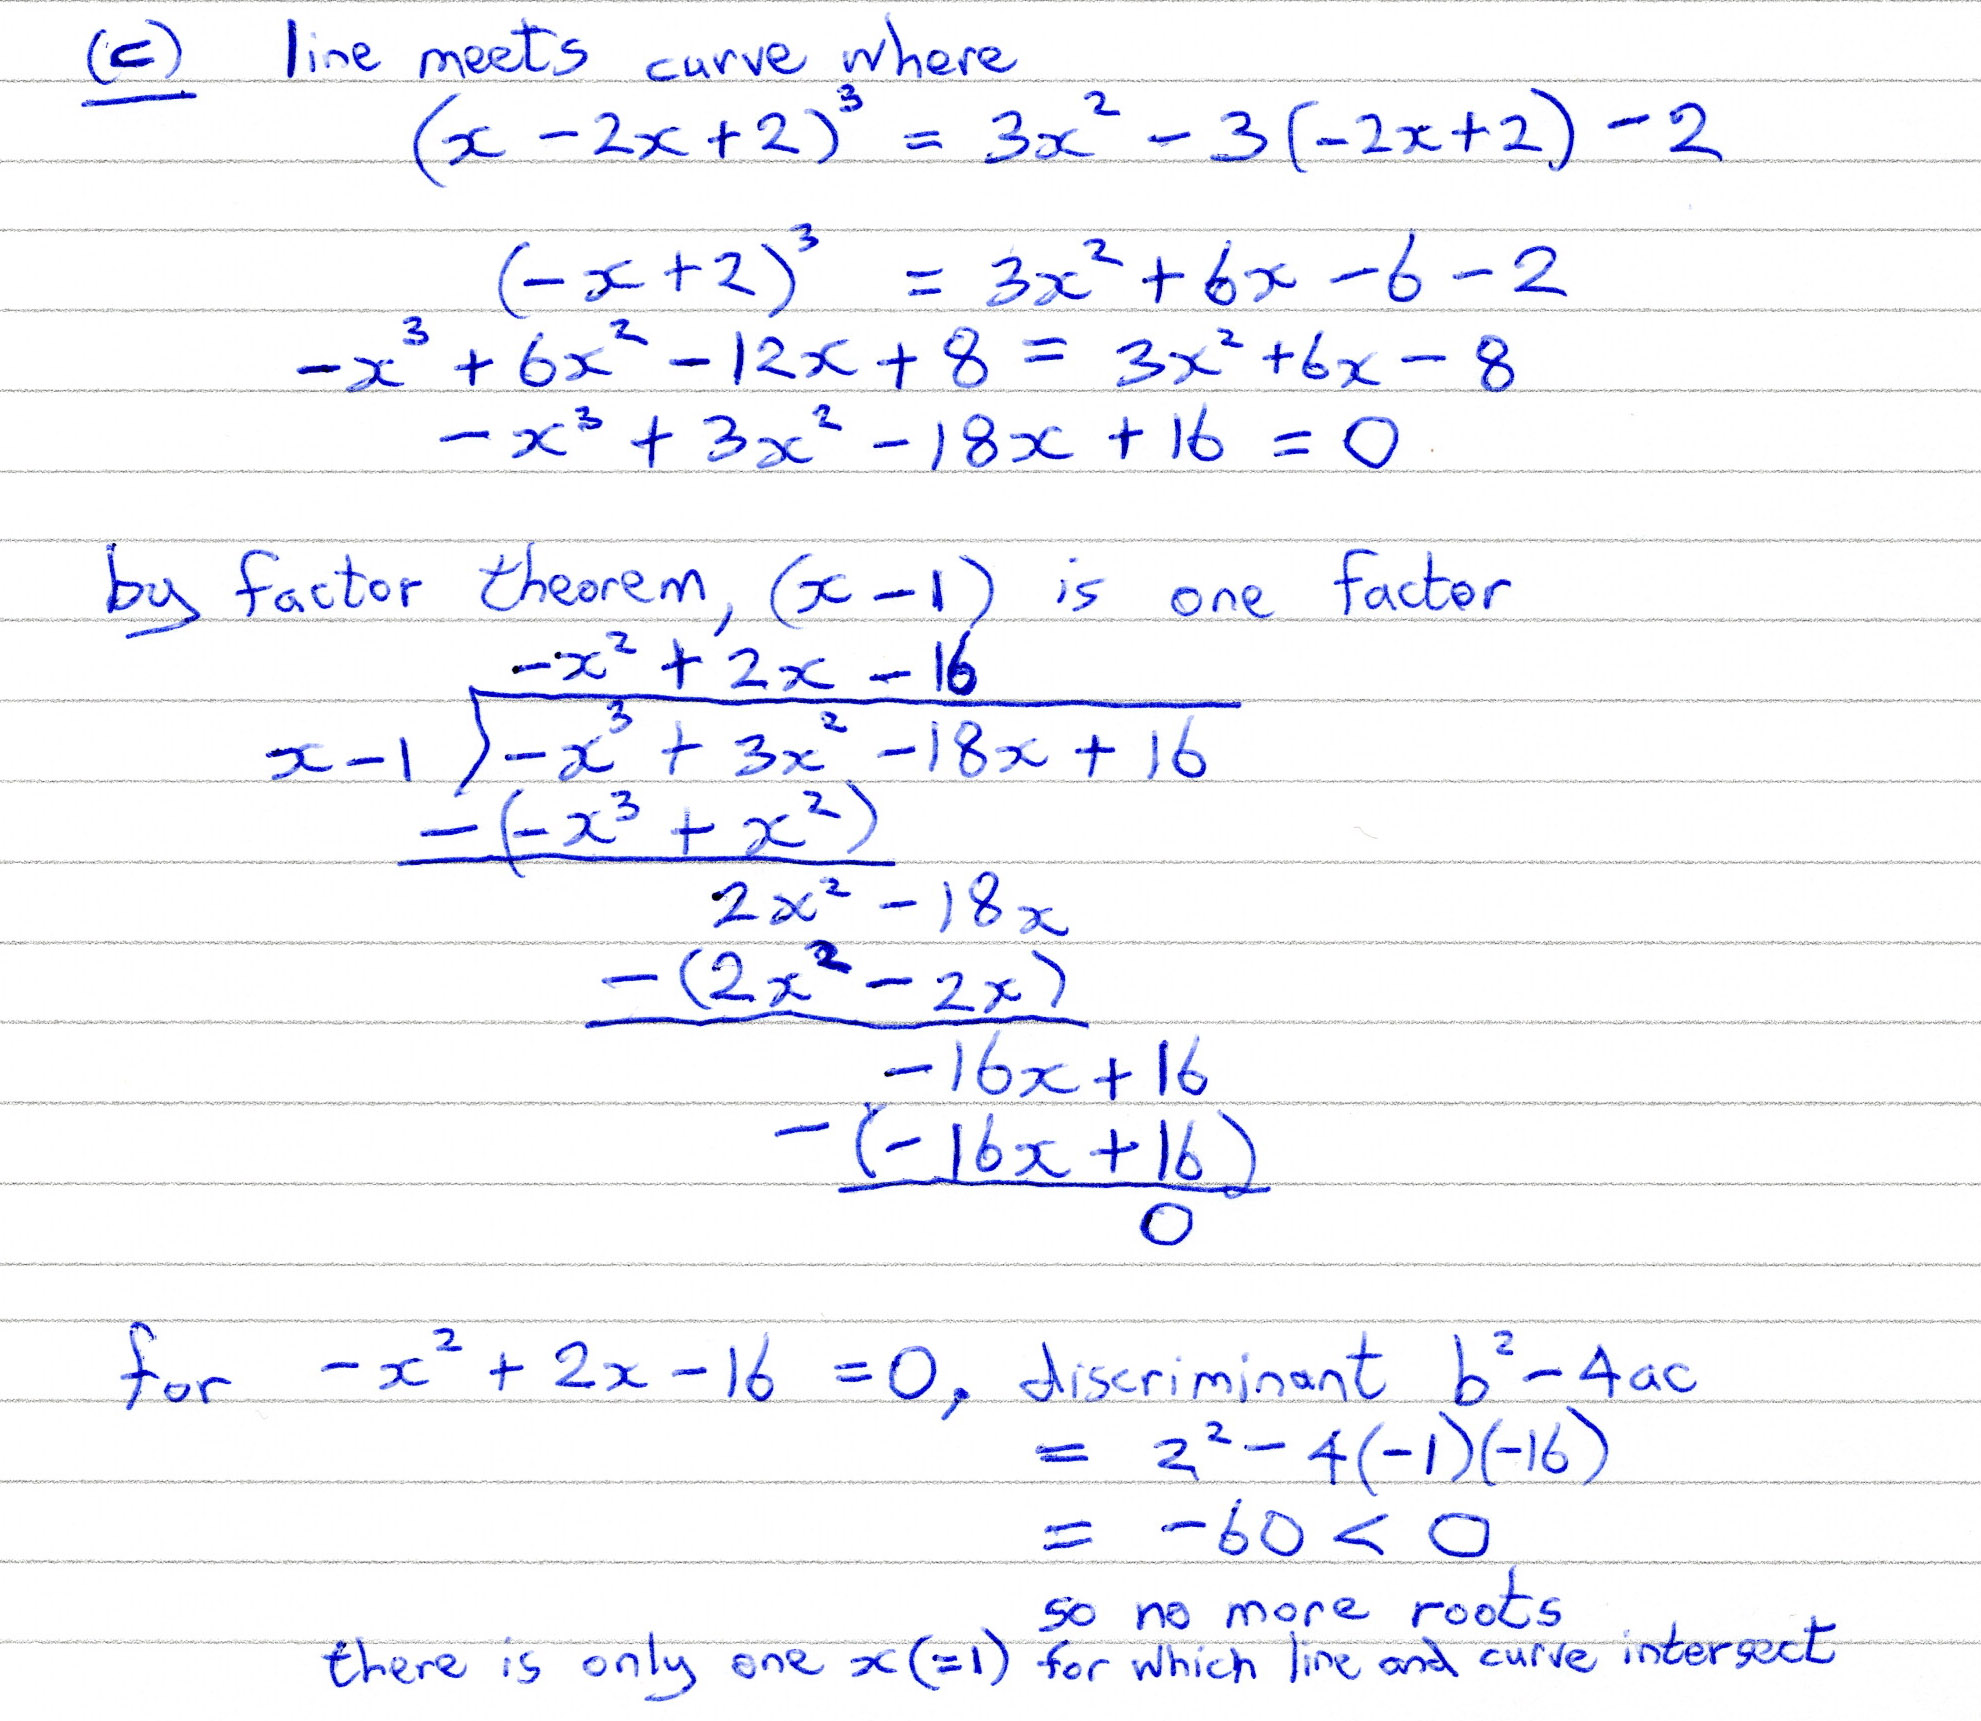 (c) line meets curve where
(x - 2x + 2)³ = 3x² - 3(-2x+2) - 2
(-x+2)³ = 3x² + 6x - 6 - 2
-x³ + 6x² - 12x + 8 = 3x² + 6x - 8
-x³ + 3x² - 18x + 16 = 0
by factor theorem, (x - 1) is one factor
-x² + 2x - 16
x - 1 ) -x³ + 3x² - 18x + 16
- (-x³ + x²)
2x² - 18x
- (2x² - 2x)
-16x + 16
- (-16x + 16)
0
for -x² + 2x - 16 = 0, discriminant b² - 4ac
= 2² - 4(-1)(-16)
= -60 < 0
so no more roots
there is only one x (=1) for which line and curve intersect